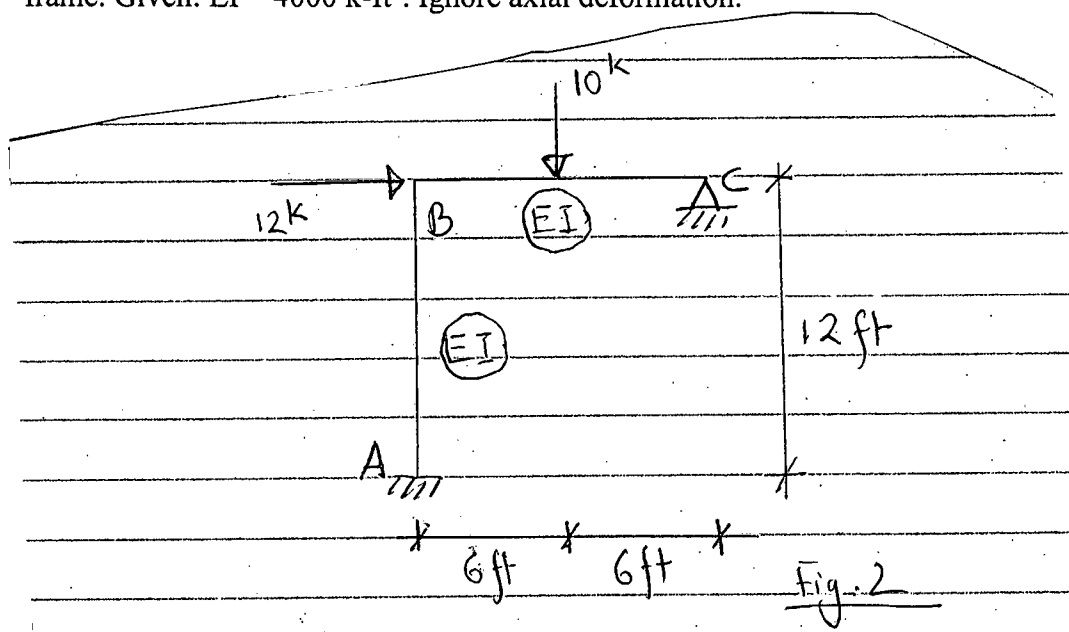 frame. Given: EI = 4000 k-ft². Ignore axial deformation.
10 k
12 k
B
EI
C
EI
12 ft
A
6 ft
6 ft
Fig. 2